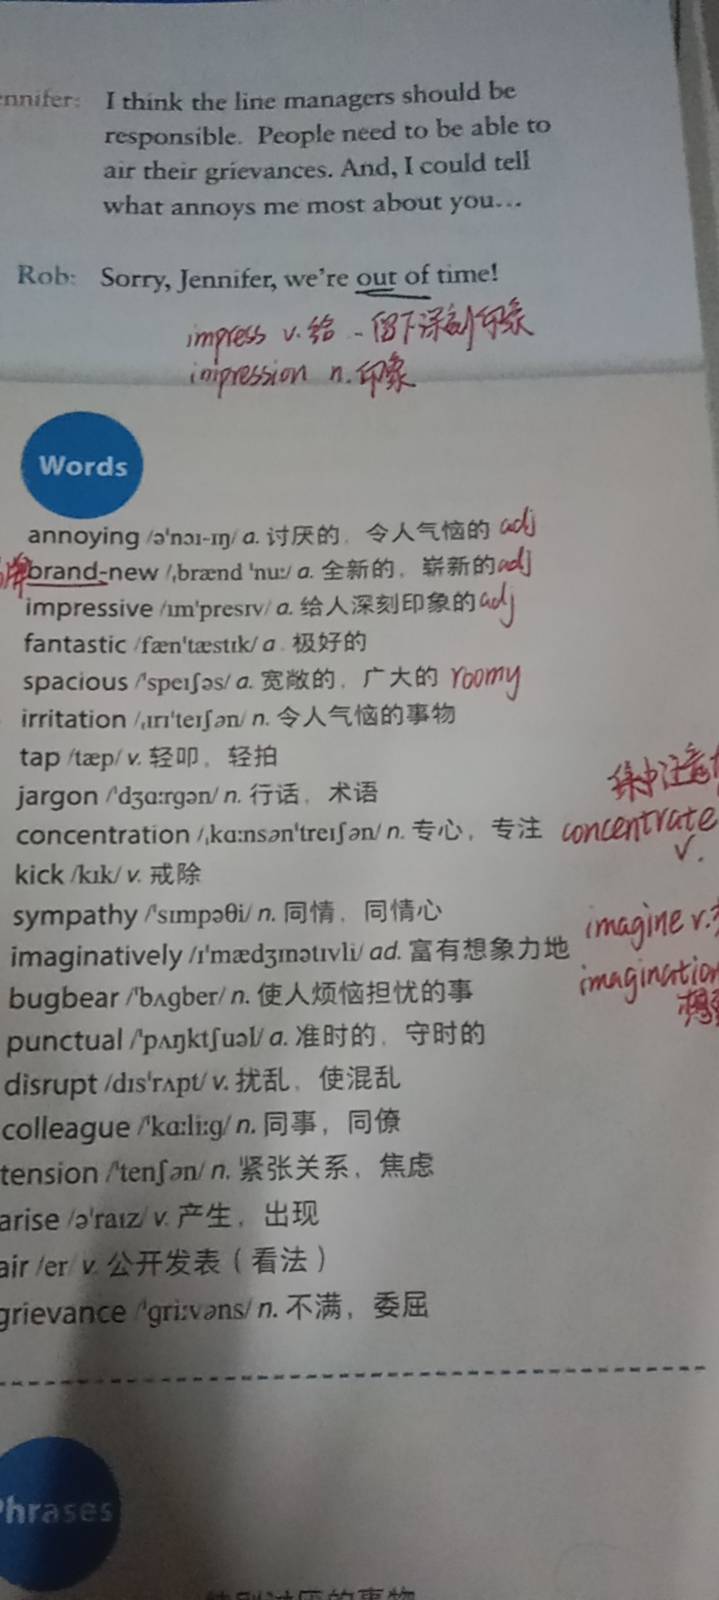 nnifer: I think the line managers should be
responsible. People need to be able to
air their grievances. And, I could tell
what annoys me most about you…
Rob: Sorry, Jennifer, we're out of time!
impress v. 给 - 留下深刻印象
impression n. 印象
Words
annoying /ə'nɔɪ-ɪŋ/ a. 讨厌的，令人气恼的 adj
brand-new /ˌbrænd 'nuː/ a. 全新的，崭新的 adj
impressive /ɪm'presɪv/ a. 给人深刻印象的 adj
fantastic /fæn'tæstɪk/ a. 极好的
spacious /'speɪʃəs/ a. 宽敞的，广大的 roomy
irritation /ˌɪrɪ'teɪʃən/ n. 令人气恼的事物
tap /tæp/ v. 轻叩，轻拍
jargon /'dʒɑːrgən/ n. 行话，术语
集中注意
concentration /ˌkɑːnsən'treɪʃən/ n. 专心，专注 concentrate
v.
kick /kɪk/ v. 戒除
sympathy /'sɪmpəθi/ n. 同情，同情心
imagine v.
imaginatively /ɪ'mædʒɪnətɪvli/ ad. 富有想象力地
imagination
想
bugbear /'bʌgber/ n. 使人烦恼担忧的事
punctual /'pʌŋktʃuəl/ a. 准时的，守时的
disrupt /dɪs'rʌpt/ v. 扰乱，使混乱
colleague /'kɑːliːg/ n. 同事，同僚
tension /'tenʃən/ n. 紧张关系，焦虑
arise /ə'raɪz/ v. 产生，出现
air /er/ v. 公开发表（看法）
grievance /'griːvəns/ n. 不满，委屈
Phrases